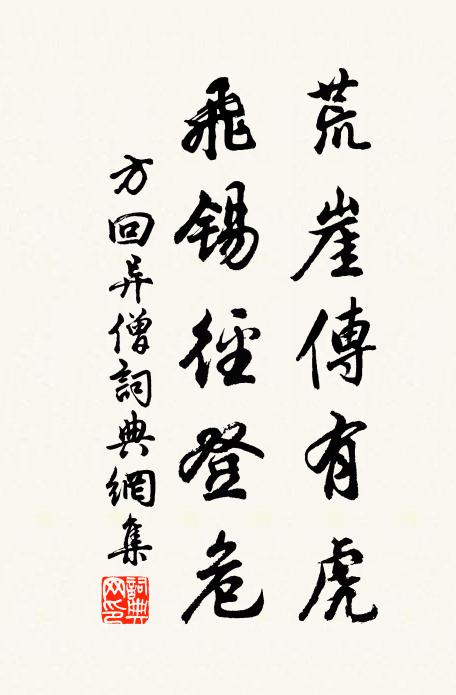 荒崖傳有虎
飛錫徑登危
方回异僧詞典網集
詞典网印